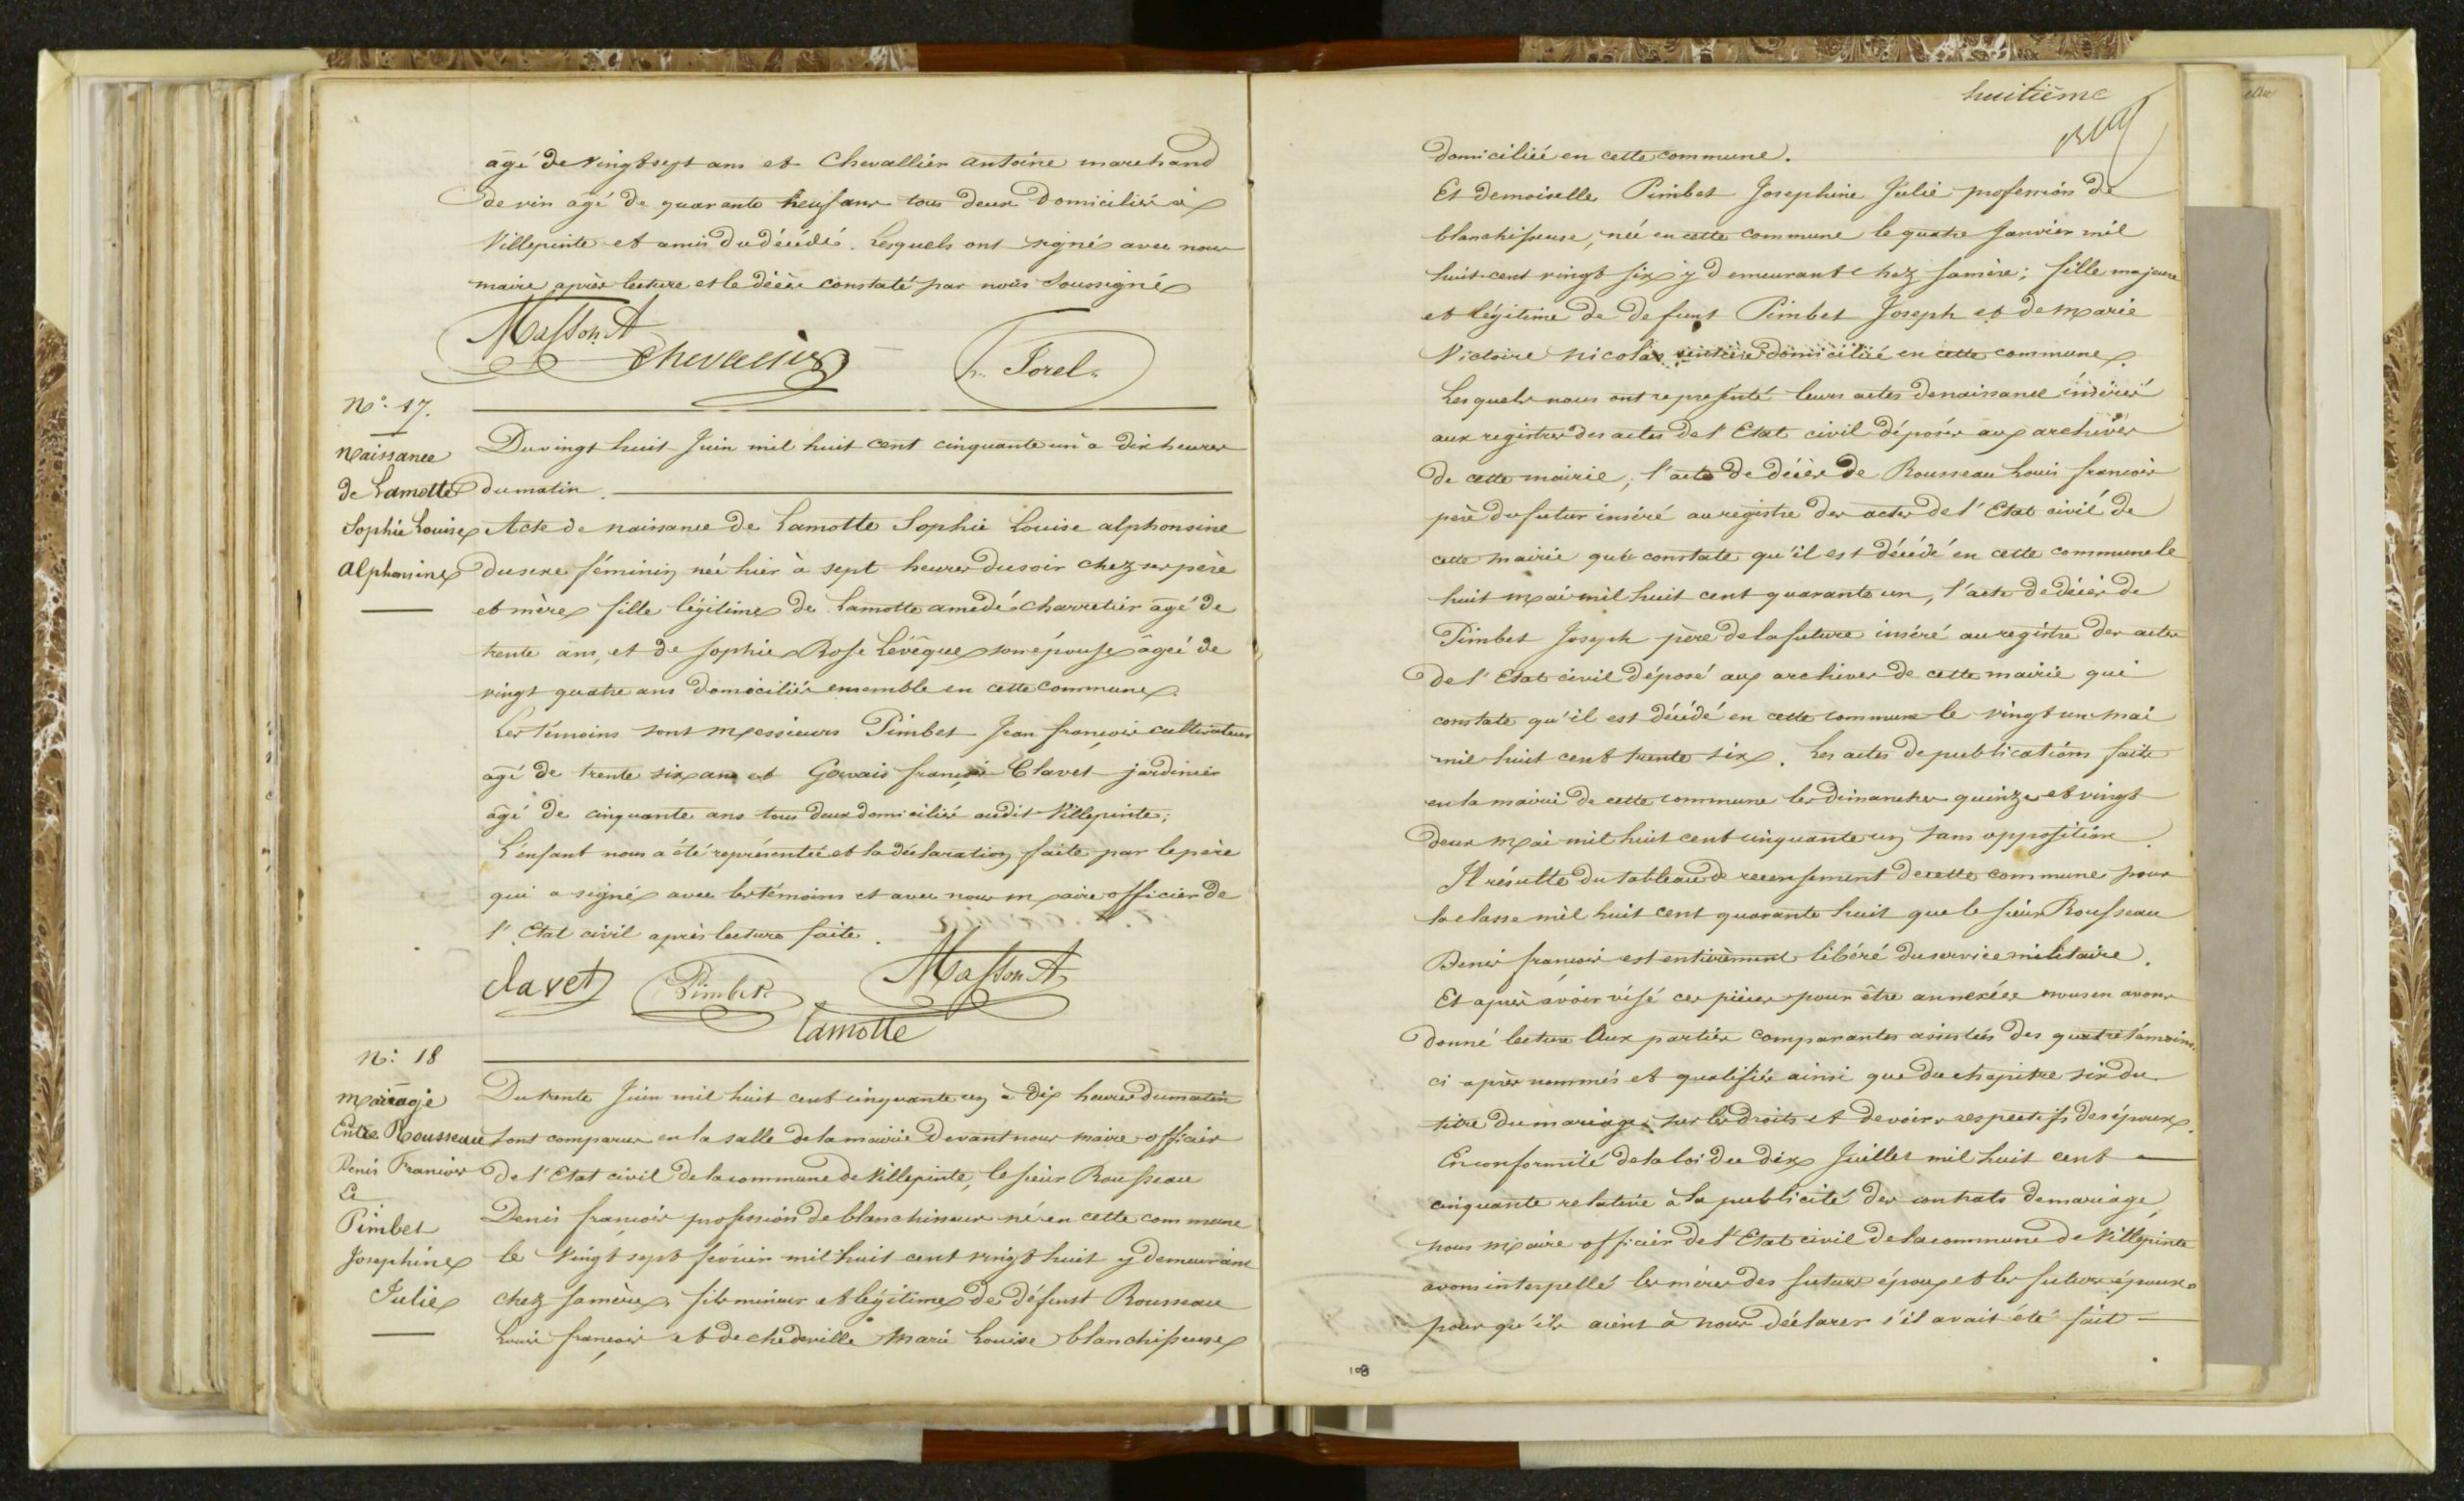 âgé de vingt sept ans et Chevallier antoine marchand
de vin âgé de quarante neuf ans tous deux Domiciliés à
Villepinte et amis du décédé. Lesquels ont signé avec nous
maire après lecture et le décès constaté par nous Soussigné
Masson A
Chevalier
Sorel
N° 17.
Naissance
de Lamotte
Sophie Louise
Alphonsine
Du vingt huit Juin mil huit cent cinquante un à dix heures
du matin.
Acte de naissance de Lamotte Sophie Louise alphonsine
du sexe féminin née hier à sept heures du soir chez ses père
et mère fille légitime de Lamotte amédé charretier âgé de
trente ans, et de Sophie Rose Lévêque son épouse âgée de
vingt quatre ans domiciliés ensemble en cette commune
Les témoins sont Messieurs Pimbet Jean françois cultivateur
âgé de trente six ans et Gervais françois Clavet jardinier
âgé de cinquante ans tous deux domiciliés audit Villepinte;
L'enfant nous a été représentée et la déclaration faite par le père
qui a signé avec les témoins et avec nous Maire officier de
l'Etat civil après lecture faite.
Clavet
Pimbet
Masson A
Lamotte
N° 18
Mariage
Entre Rousseau
Denis François
Et
Pimbet
Josephine
Julie
Du trente Juin mil huit cent cinquante un à dix heures du matin
Sont comparus en la salle de la mairie devant nous maire officier
de l'Etat civil de la commune de Villepinte, le sieur Rousseau
Denis françois profession de blanchisseur né en cette commune
le vingt sept février mil huit cent vingt huit y demeurant
chez sa mère, fils mineur et légitime de défunt Rousseau
Louis françois et de chedeville Marie Louise blanchisseuse
huitième
domiciliée en cette commune.
Et demoiselle Pimbet Josephine Julie profession de
blanchisseuse, née en cette commune le quatre Janvier mil
huit cent vingt six y demeurant chez sa mère; fille majeure
et légitime de defunt Pimbet Joseph et de Marie
Victoire Nicolas domiciliée en cette commune
Lesquels nous ont représenté leurs actes de naissance insérés
aux registres des actes de l'Etat civil déposés aux archives
de cette mairie, l'acte de décès de Rousseau Louis françois
père du futur inséré au registre des actes de l'Etat civil de
cette mairie qui constate qu'il est décédé en cette commune le
huit Mai mil huit cent quarante un, l'acte de décès de
Pimbet Joseph père de la future inséré au registre des actes
de l'Etat civil déposé aux archives de cette mairie qui
constate qu'il est décédé en cette commune le vingt un mai
mil huit cent trente six. Les actes de publications faits
en la mairie de cette commune les dimanches quinze et vingt
deux Mai mil huit cent cinquante un sans opposition.
Il résulte du tableau de recensement de cette commune pour
la classe mil huit cent quarante huit que le sieur Rousseau
Denis françois est entièrement libéré du service militaire.
Et après avoir visé ces pièces pour être annexées nous en avons
donné lecture Aux parties comparantes assistées des quatre témoins
ci après nommés et qualifiés ainsi que du chapitre six du
titre du mariage, sur les droits et devoirs respectifs des époux.
En conformité de la loi du dix Juillet mil huit cent
cinquante relative à la publicité des contrats de mariage,
nous Maire officier de l'Etat civil de la commune de Villepinte
avons interpellé les mères des futurs époux et les futurs époux
pour qu'ils aient à nous déclarer s'il avait été fait
108